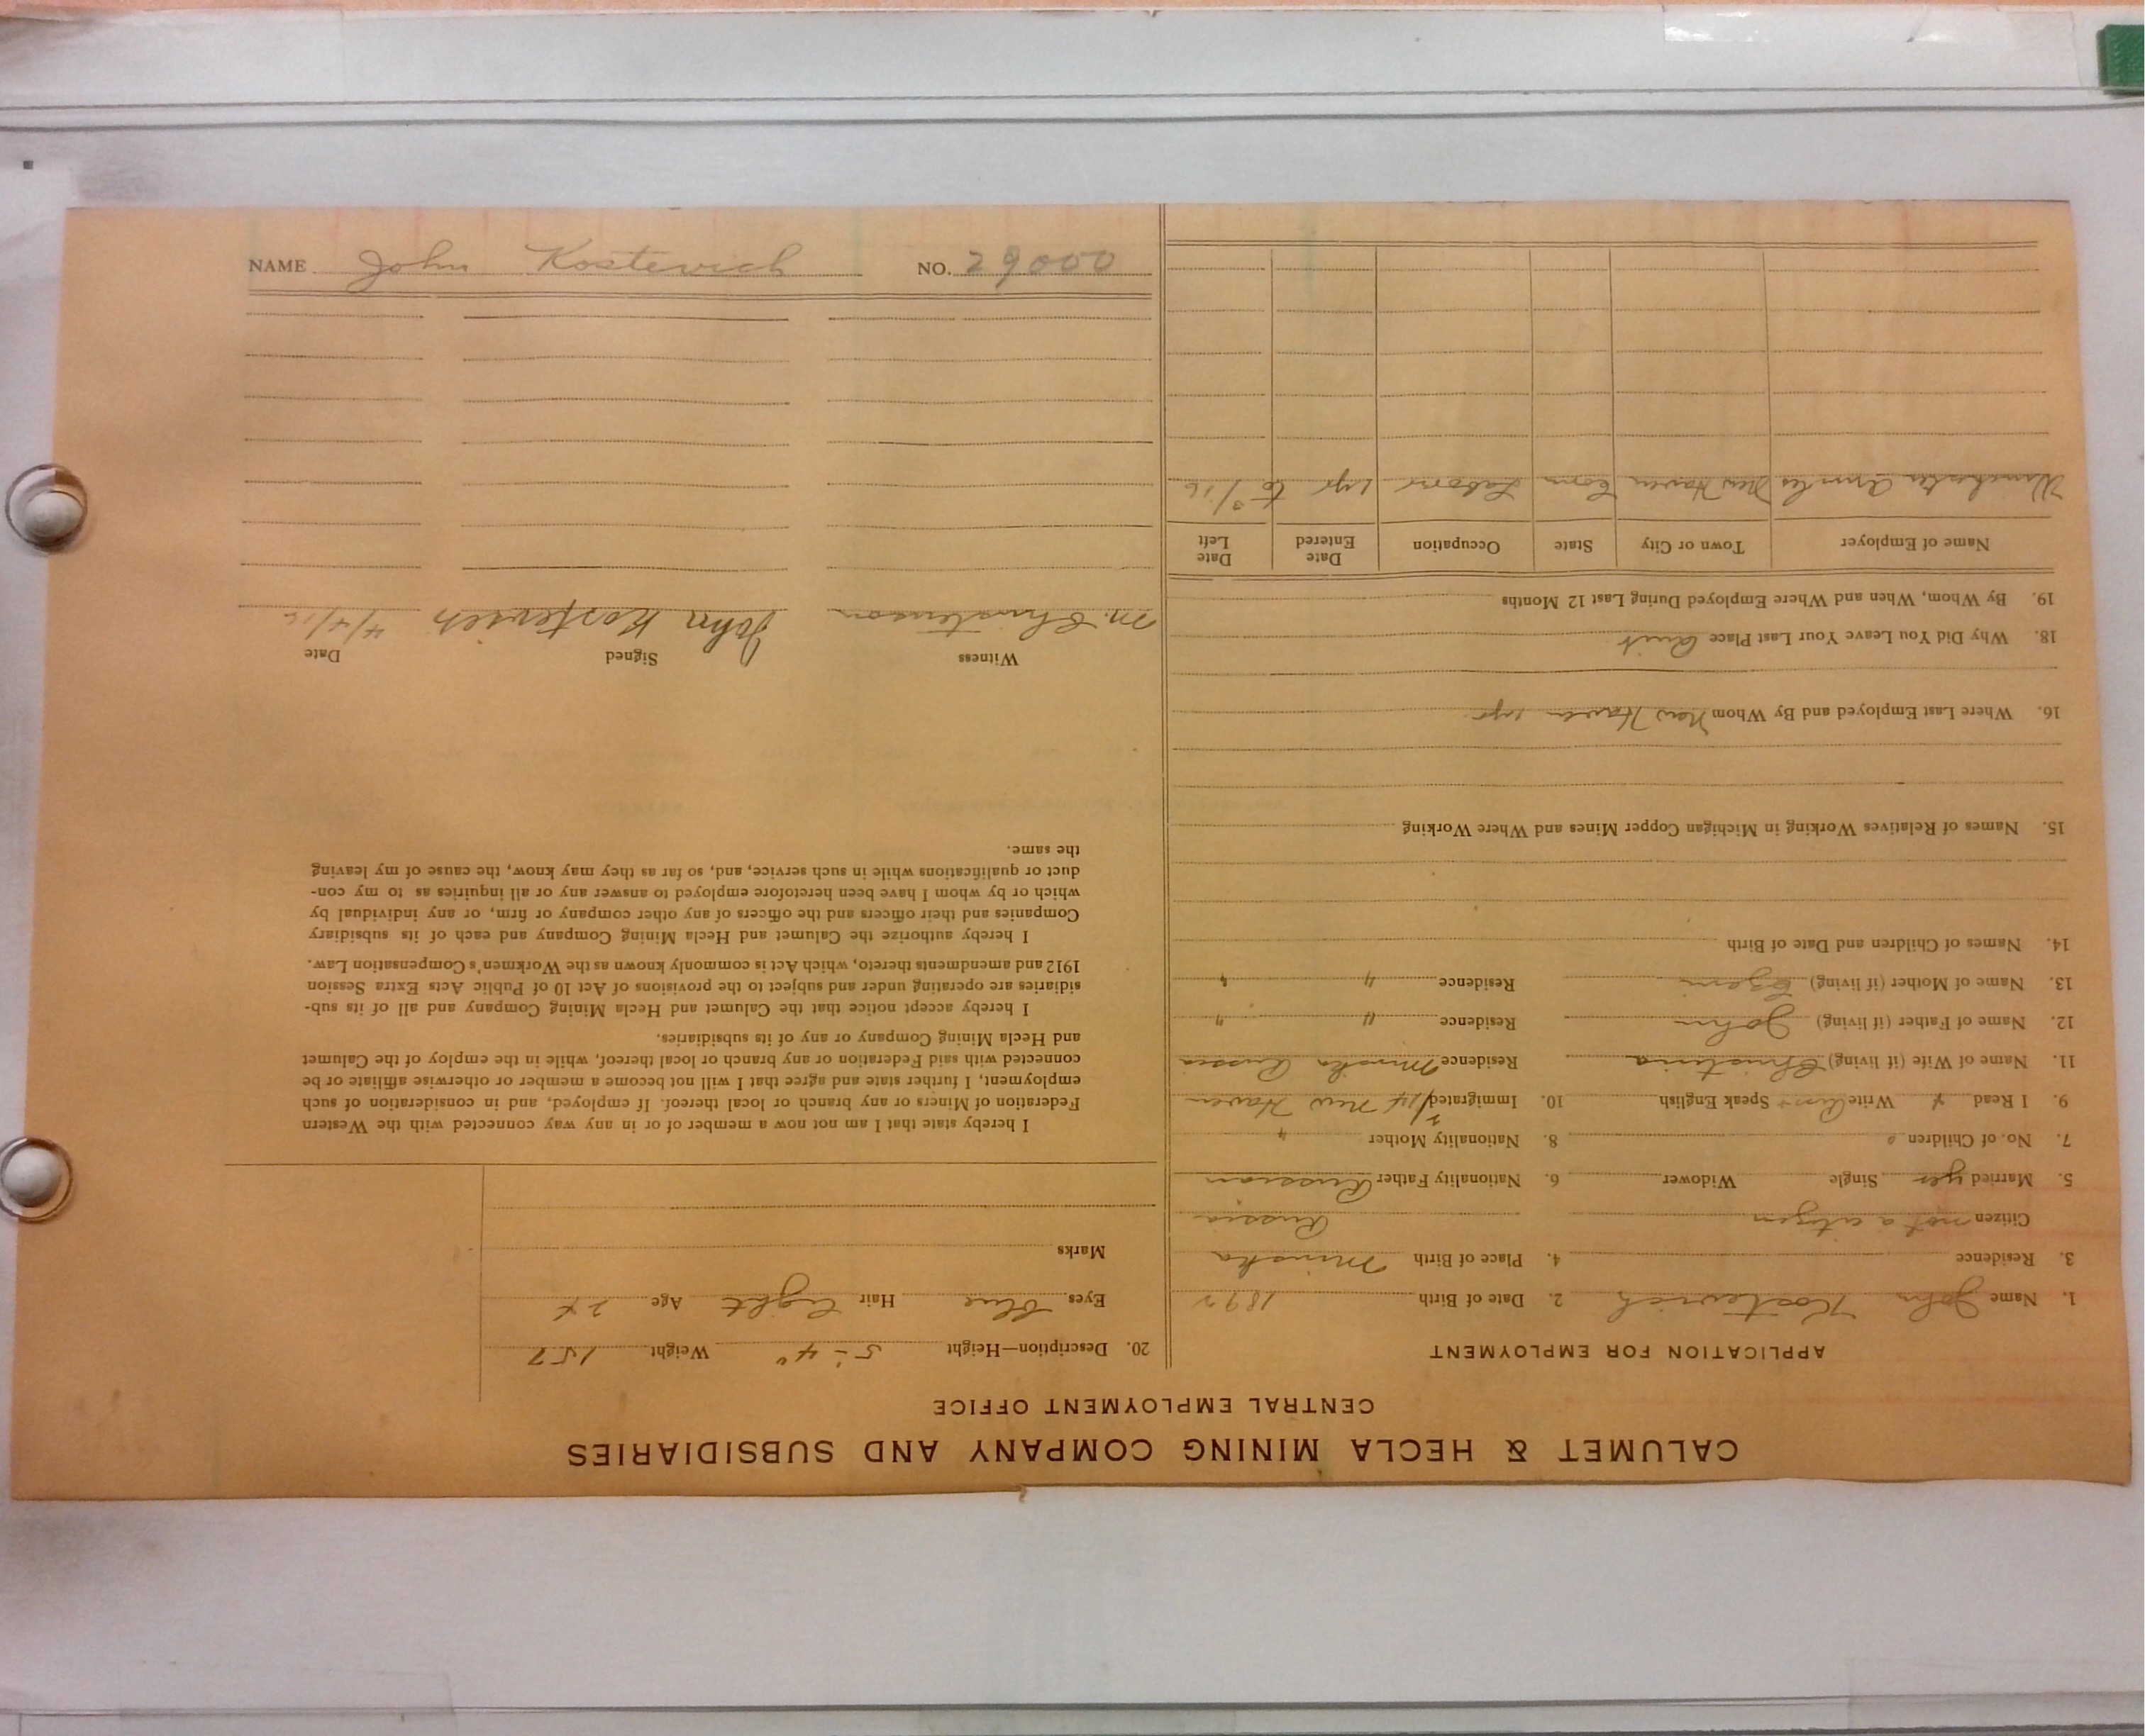 NAME John Kostevich NO. 29000
CALUMET & HECLA MINING COMPANY AND SUBSIDIARIES
CENTRAL EMPLOYMENT OFFICE
APPLICATION FOR EMPLOYMENT
1. Name John Kostevich 2. Date of Birth 1892
3. Residence 4. Place of Birth Minska
Citizen not a citizen Russia
5. Married yes Single Widower 6. Nationality Father Russian
7. No. of Children 0 8. Nationality Mother "
9. I Read Write Speak English 10. Immigrated New Haven
11. Name of Wife (if living) Christina Residence Minska Russia
12. Name of Father (if living) John Residence " "
13. Name of Mother (if living) Residence " "
14. Names of Children and Date of Birth
15. Names of Relatives Working in Michigan Copper Mines and Where Working
16. Where Last Employed and By Whom New Haven 1 yr
18. Why Did You Leave Your Last Place Quit
19. By Whom, When and Where Employed During Last 12 Months
Name of Employer Town or City State Occupation Date Entered Date Left
Winchester New Haven Conn Laborer 1 yr to 3/16
20. Description—Height 5-4" Weight 157
Eyes blue Hair light Age 24
Marks
I hereby state that I am not now a member of or in any way connected with the Western
Federation of Miners or any branch or local thereof. If employed, and in consideration of such
employment, I further state and agree that I will not become a member or otherwise affiliate or be
connected with said Federation or any branch or local thereof, while in the employ of the Calumet
and Hecla Mining Company or any of its subsidiaries.
I hereby accept notice that the Calumet and Hecla Mining Company and all of its sub-
sidiaries are operating under and subject to the provisions of Act 10 of Public Acts Extra Session
1912 and amendments thereto, which Act is commonly known as the Workmen's Compensation Law.
I hereby authorize the Calumet and Hecla Mining Company and each of its subsidiary
Companies and their officers and the officers of any other company or firm, or any individual by
which or by whom I have been heretofore employed to answer any or all inquiries as to my con-
duct or qualifications while in such service, and, so far as they may know, the cause of my leaving
the same.
Witness Signed Date
M. Christenson John Kostevich 4/4/16